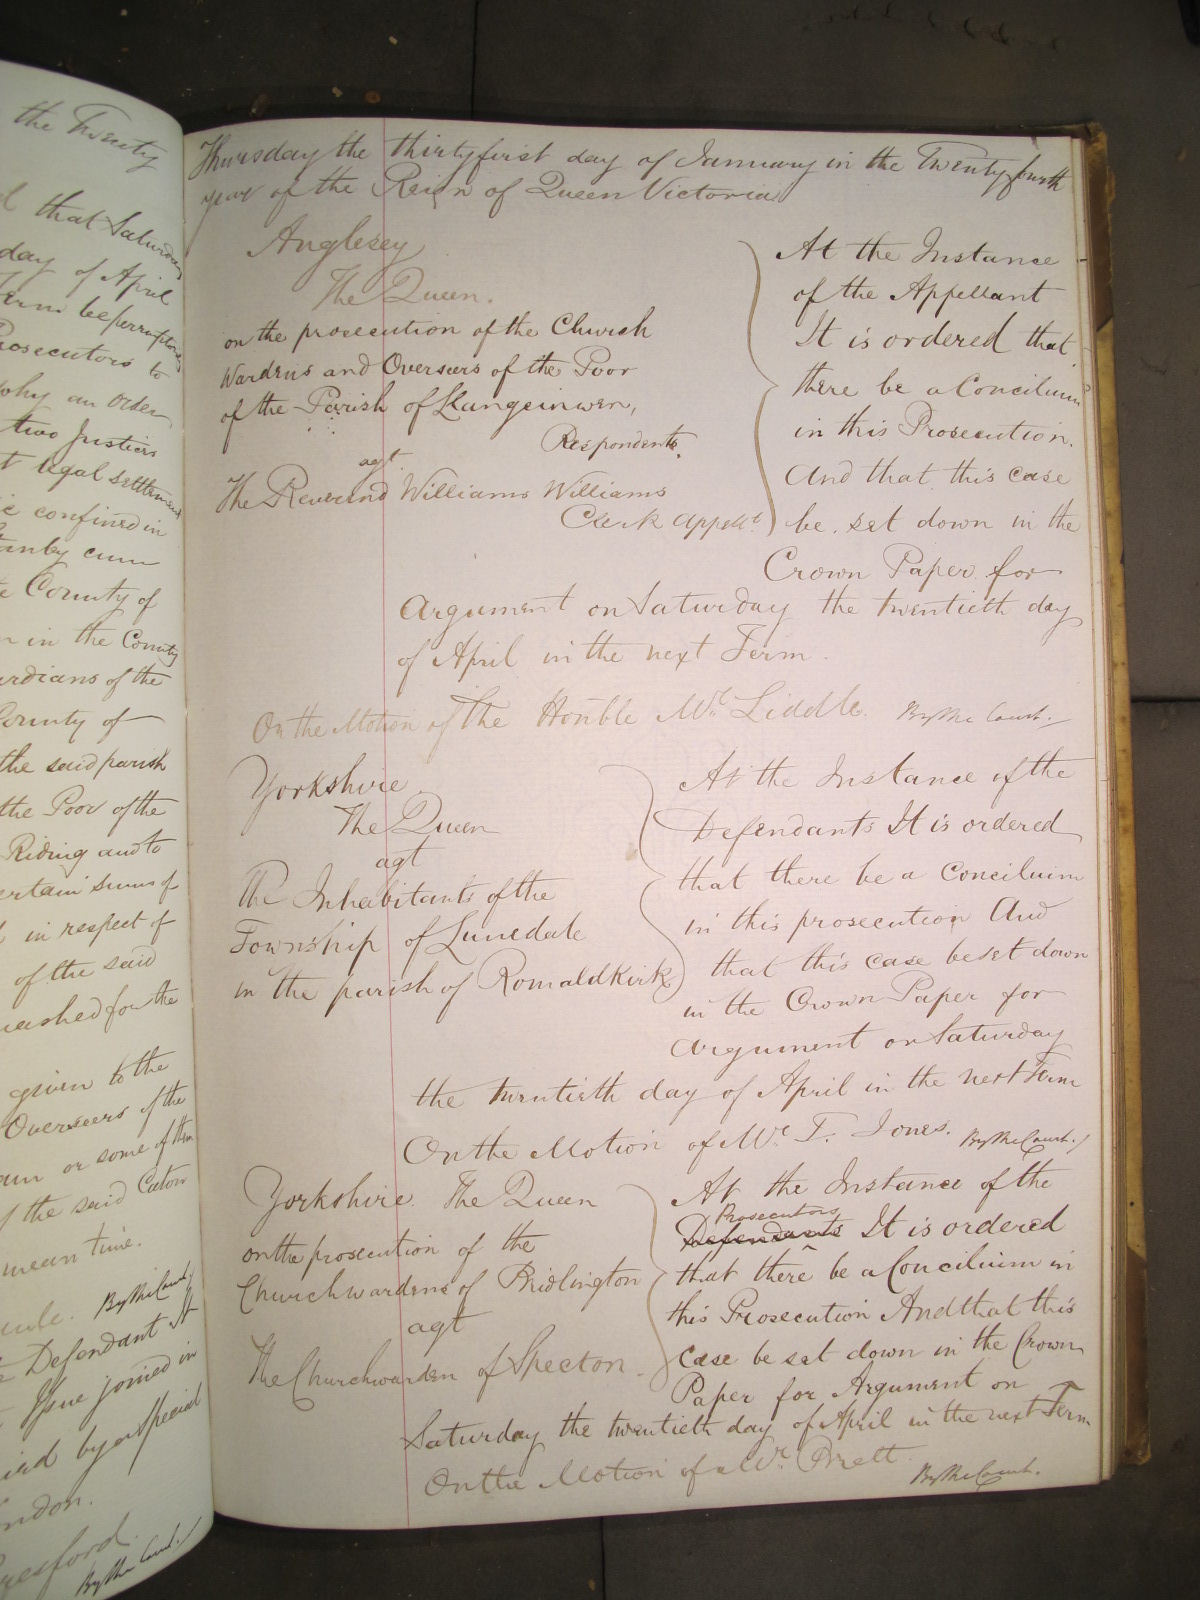 the Twenty
that Saturday
day of April
Term be peremptory
Prosecutors to
why an order
two Justices
legal settlement
confined in
cum
County of
in the County
of the
County of
the said parish
the Poor of the
Riding and to
certain sums of
in respect of
of the said
quashed for the
given to the
Overseers of the
or some of them
the said Caton
mean time.
Rule. By the Court
Defendant It
Issue joined in
by a special
London.
By the Court.
Thursday the thirty first day of January in the Twenty fourth
year of the Reign of Queen Victoria
Anglesey
The Queen.
on the prosecution of the Church
Wardens and Overseers of the Poor
of the Parish of Llangeinwen,
Respondents.
agt.
The Reverend Williams Williams
Clerk Appellt.
At the Instance
of the Appellant
It is ordered that
there be a Concilium
in this Prosecution.
And that this case
be set down in the
Crown Paper for
Argument on Saturday the twentieth day
of April in the next Term.
On the Motion of The Honble Mr. Liddle. By the Court.
Yorkshire
The Queen
agt
The Inhabitants of the
Township of Lunedale
in the parish of Romaldkirk
At the Instance of the
Defendants It is ordered
that there be a Concilium
in this prosecution And
that this case be set down
in the Crown Paper for
Argument on Saturday
the twentieth day of April in the next Term
On the Motion of Mr. T. Jones. By the Court.
Yorkshire. The Queen
on the prosecution of the
Churchwardens of Bridlington
agt
The Churchwarden of Specton.
At the Instance of the
Prosecutors
Defendants It is ordered
that there be a Concilium in
this Prosecution And that this
case be set down in the Crown
Paper for Argument on
Saturday the twentieth day of April in the next Term
On the Motion of Mr. Brett. By the Court.